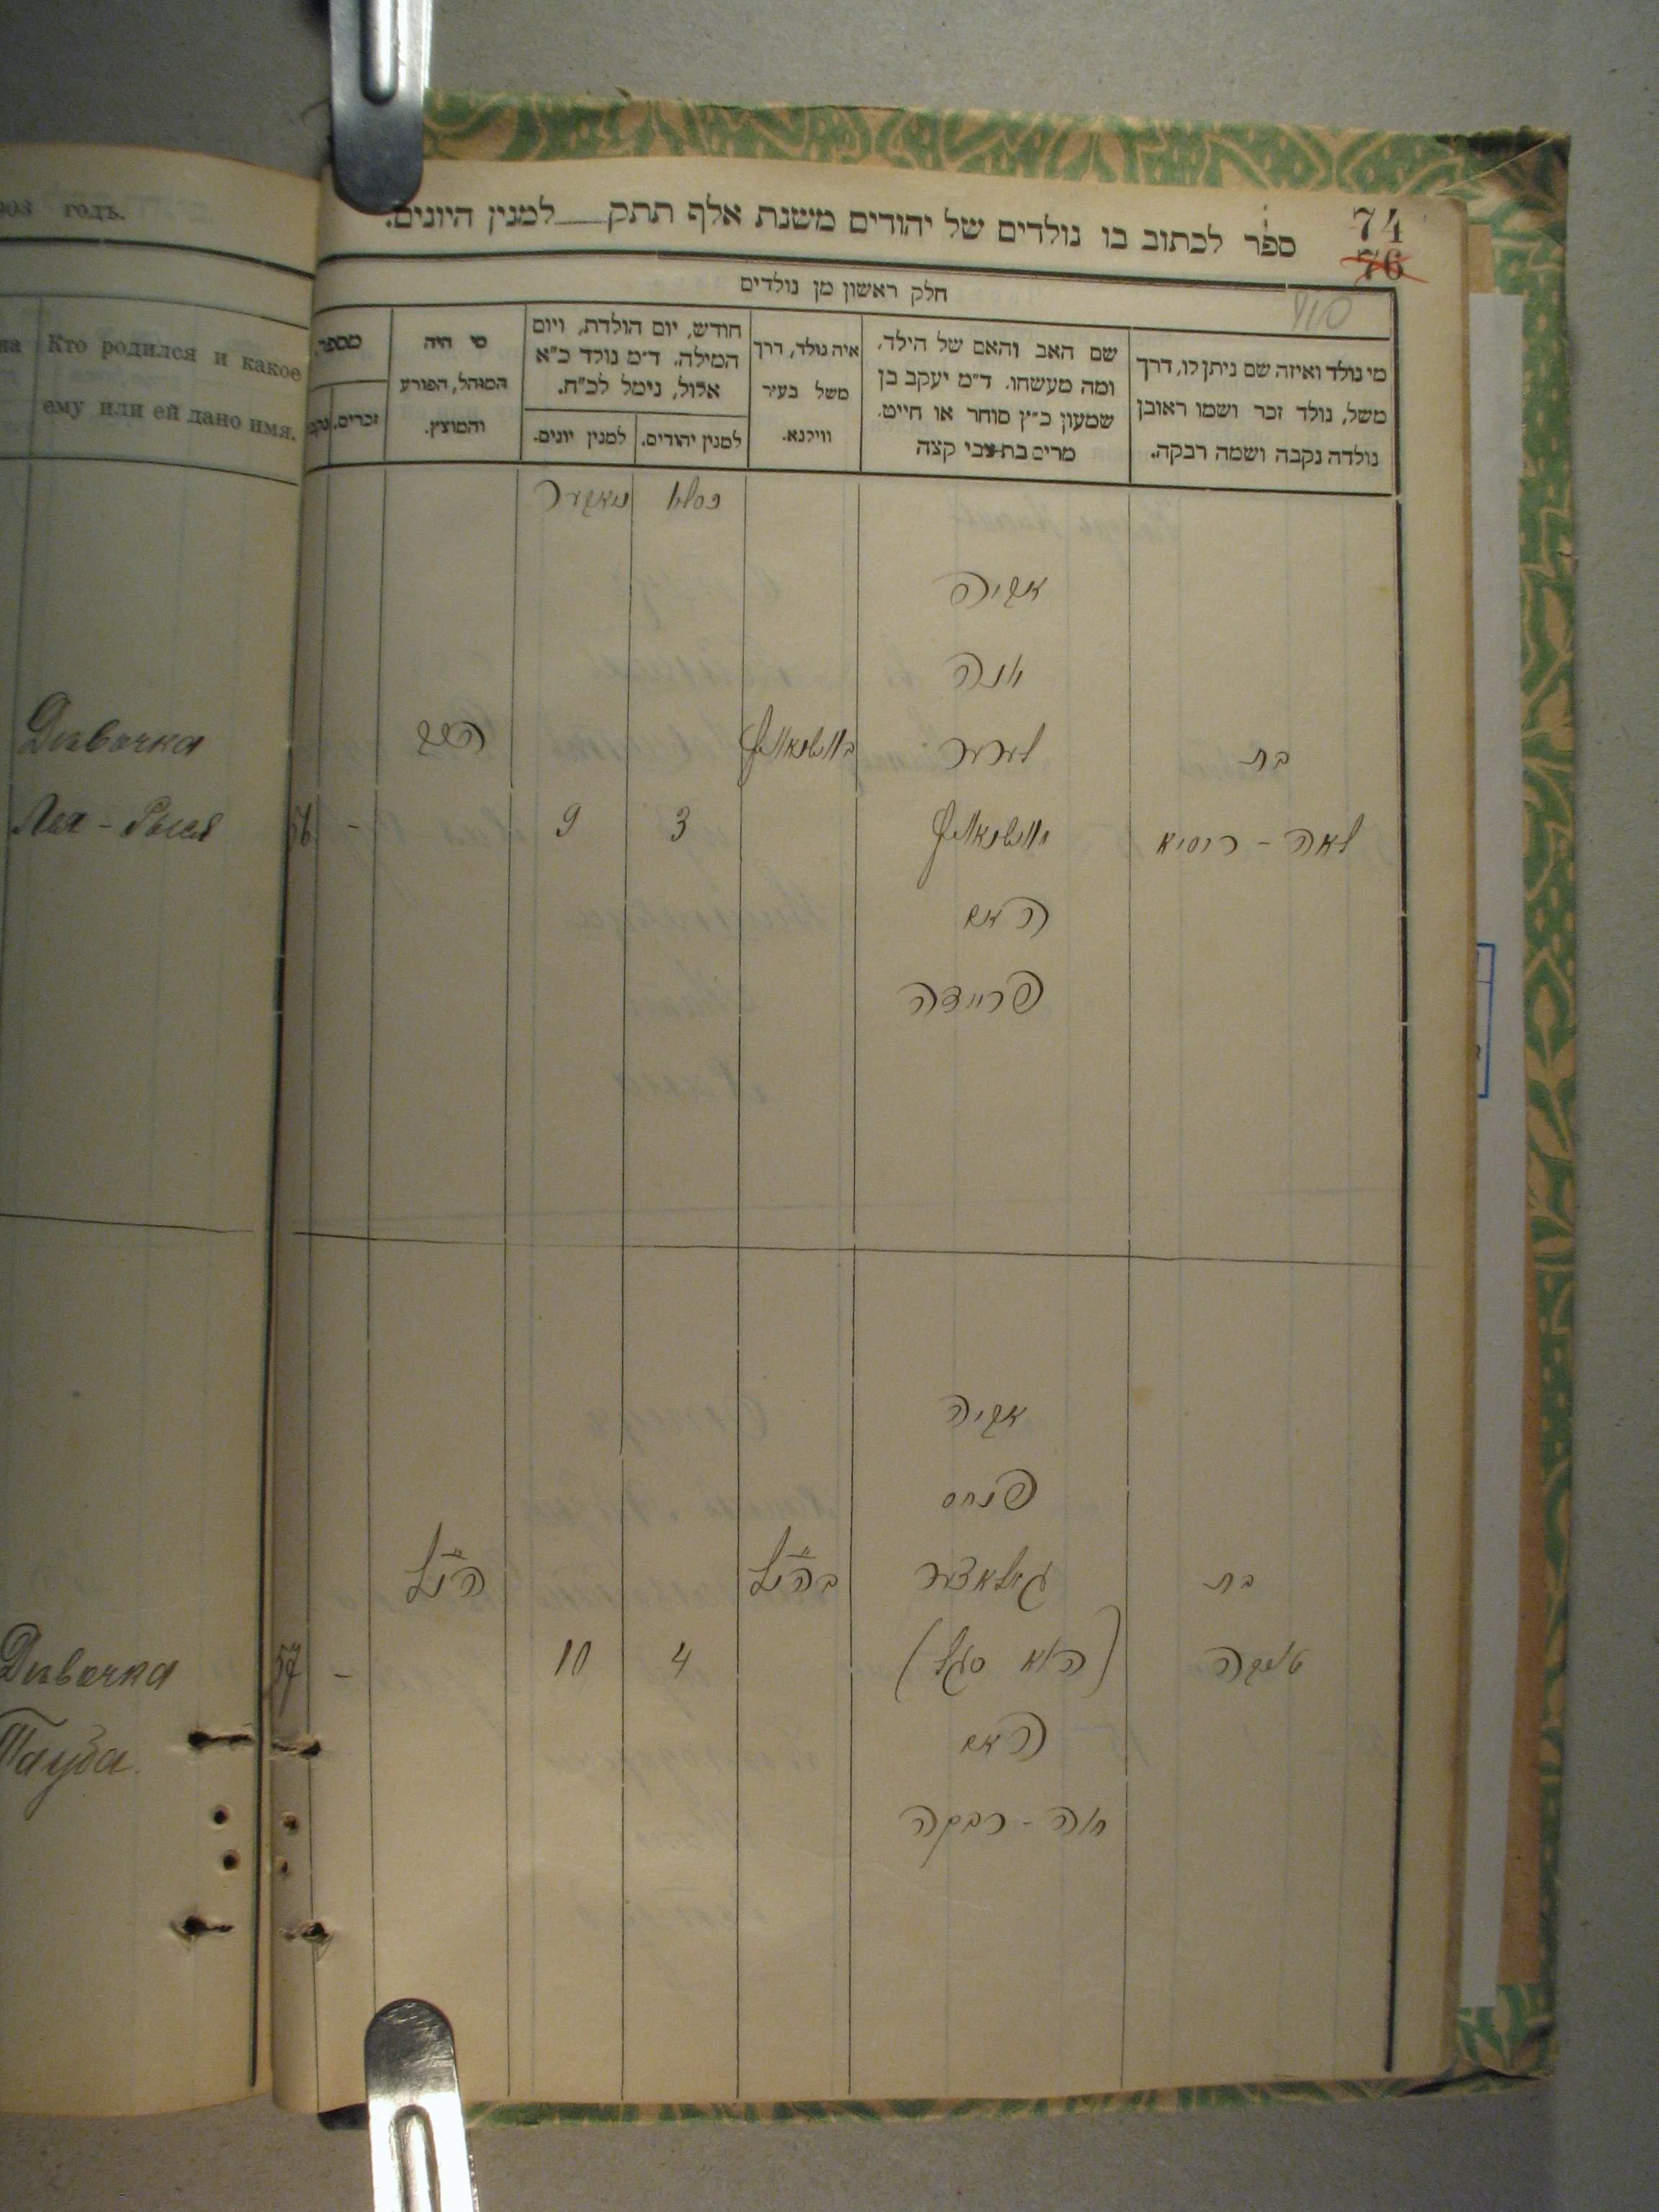 903 годъ.
Кто родился и какое
ему или ей дано имя.
Дѣвочка
Лея - Рыся
Дѣвочка
Тауба.
74
76
ספר לכתוב בו נולדים של יהודים משנת אלף תתק למנין היונים.
חלק ראשון מן נולדים
מי נולד ואיזה שם ניתן לו, דרך
משל, נולד זכר ושמו ראובן
נולדה נקבה ושמה רבקה.
שם האב והאם של הילד,
ומה מעשהו. ד״מ יעקב בן
שמעון כ״ץ סוחר או חייט.
מרים בת צבי קצה
איה נולד, דרך
משל בעיר
ווילנא.
חודש, יום הולדת, ויום
המילה. ד״מ נולד כ״א
אלול, נימל לכ״ח.
למנין יהודים.
למנין יונים.
מי היה
המוהל, הפורע
והמוצץ.
מספר,
זכרים.
כסלו
אביה
יונה
לערער
האם
פריידה
בת
לאה - ריסיא
3
9
56
-
אביה
פנחס
(הוא סגל)
האם
חוה - רבקה
בת
טויבה
בהנ״ל
4
10
הנ״ל
57
-